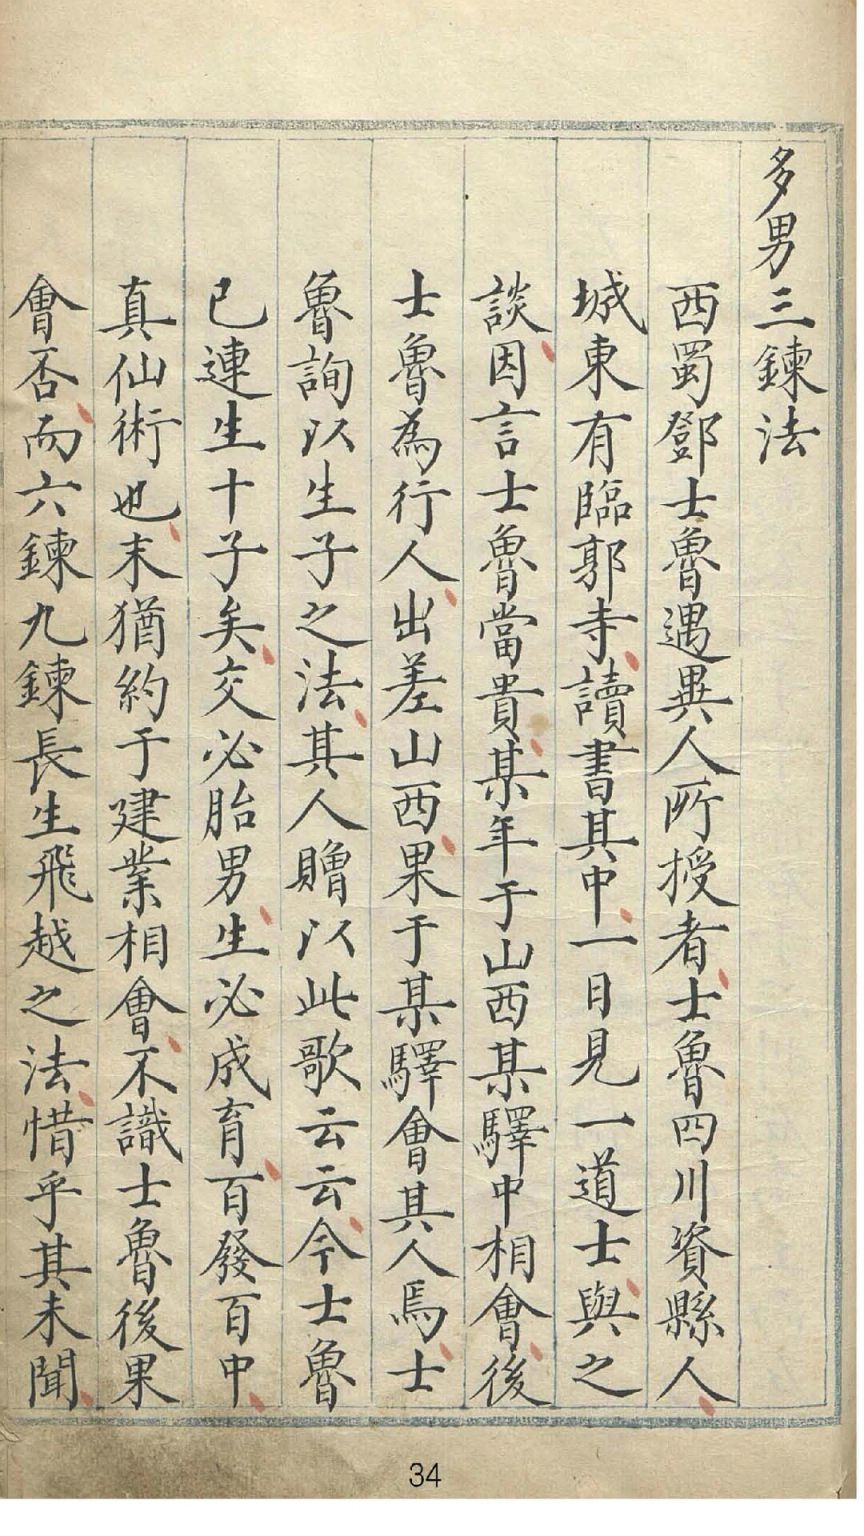 多男三鍊法
西蜀鄧士魯遇異人所授者士魯四川資縣人
城東有臨郭寺讀書其中一日見一道士與之
談因言士魯當貴某年于山西某驛中相會後
士魯為行人出差山西果于某驛會其人焉士
魯詢以生子之法其人贈以此歌云云今士魯
已連生十子矣交必胎男生必成育百發百中
真仙術也末猶約于建業相會不識士魯後果
會否而六鍊九鍊長生飛越之法惜乎其未聞
34